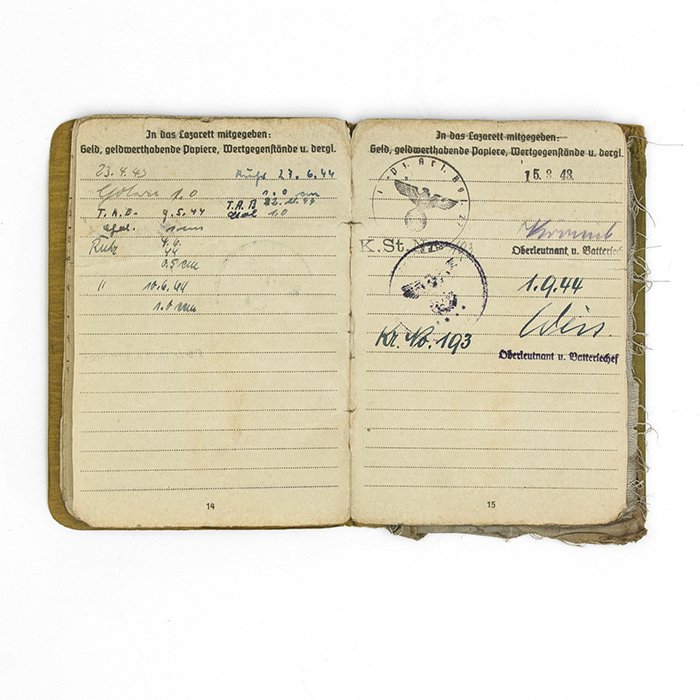 In das Lazarett mitgegeben:
Geld, geldwerthabende Papiere, Wertgegenstände u. dergl.
23.4.43
Ruhr 27.6.44
1.0
1.0 cm
T.A.B. 9.5.44
T.A.B 22.11.44
1 cm
1.0
Ruhr
4.6.
44
0.5 cm
" 10.6.44
1.0 cm
14
In das Lazarett mitgegeben:
Geld, geldwerthabende Papiere, Wertgegenstände u. dergl.
15.3.43
K.St.N.
Oberleutnant u. Batteriechef
1.9.44
Kr. No. 193
Oberleutnant u. Batteriechef
15